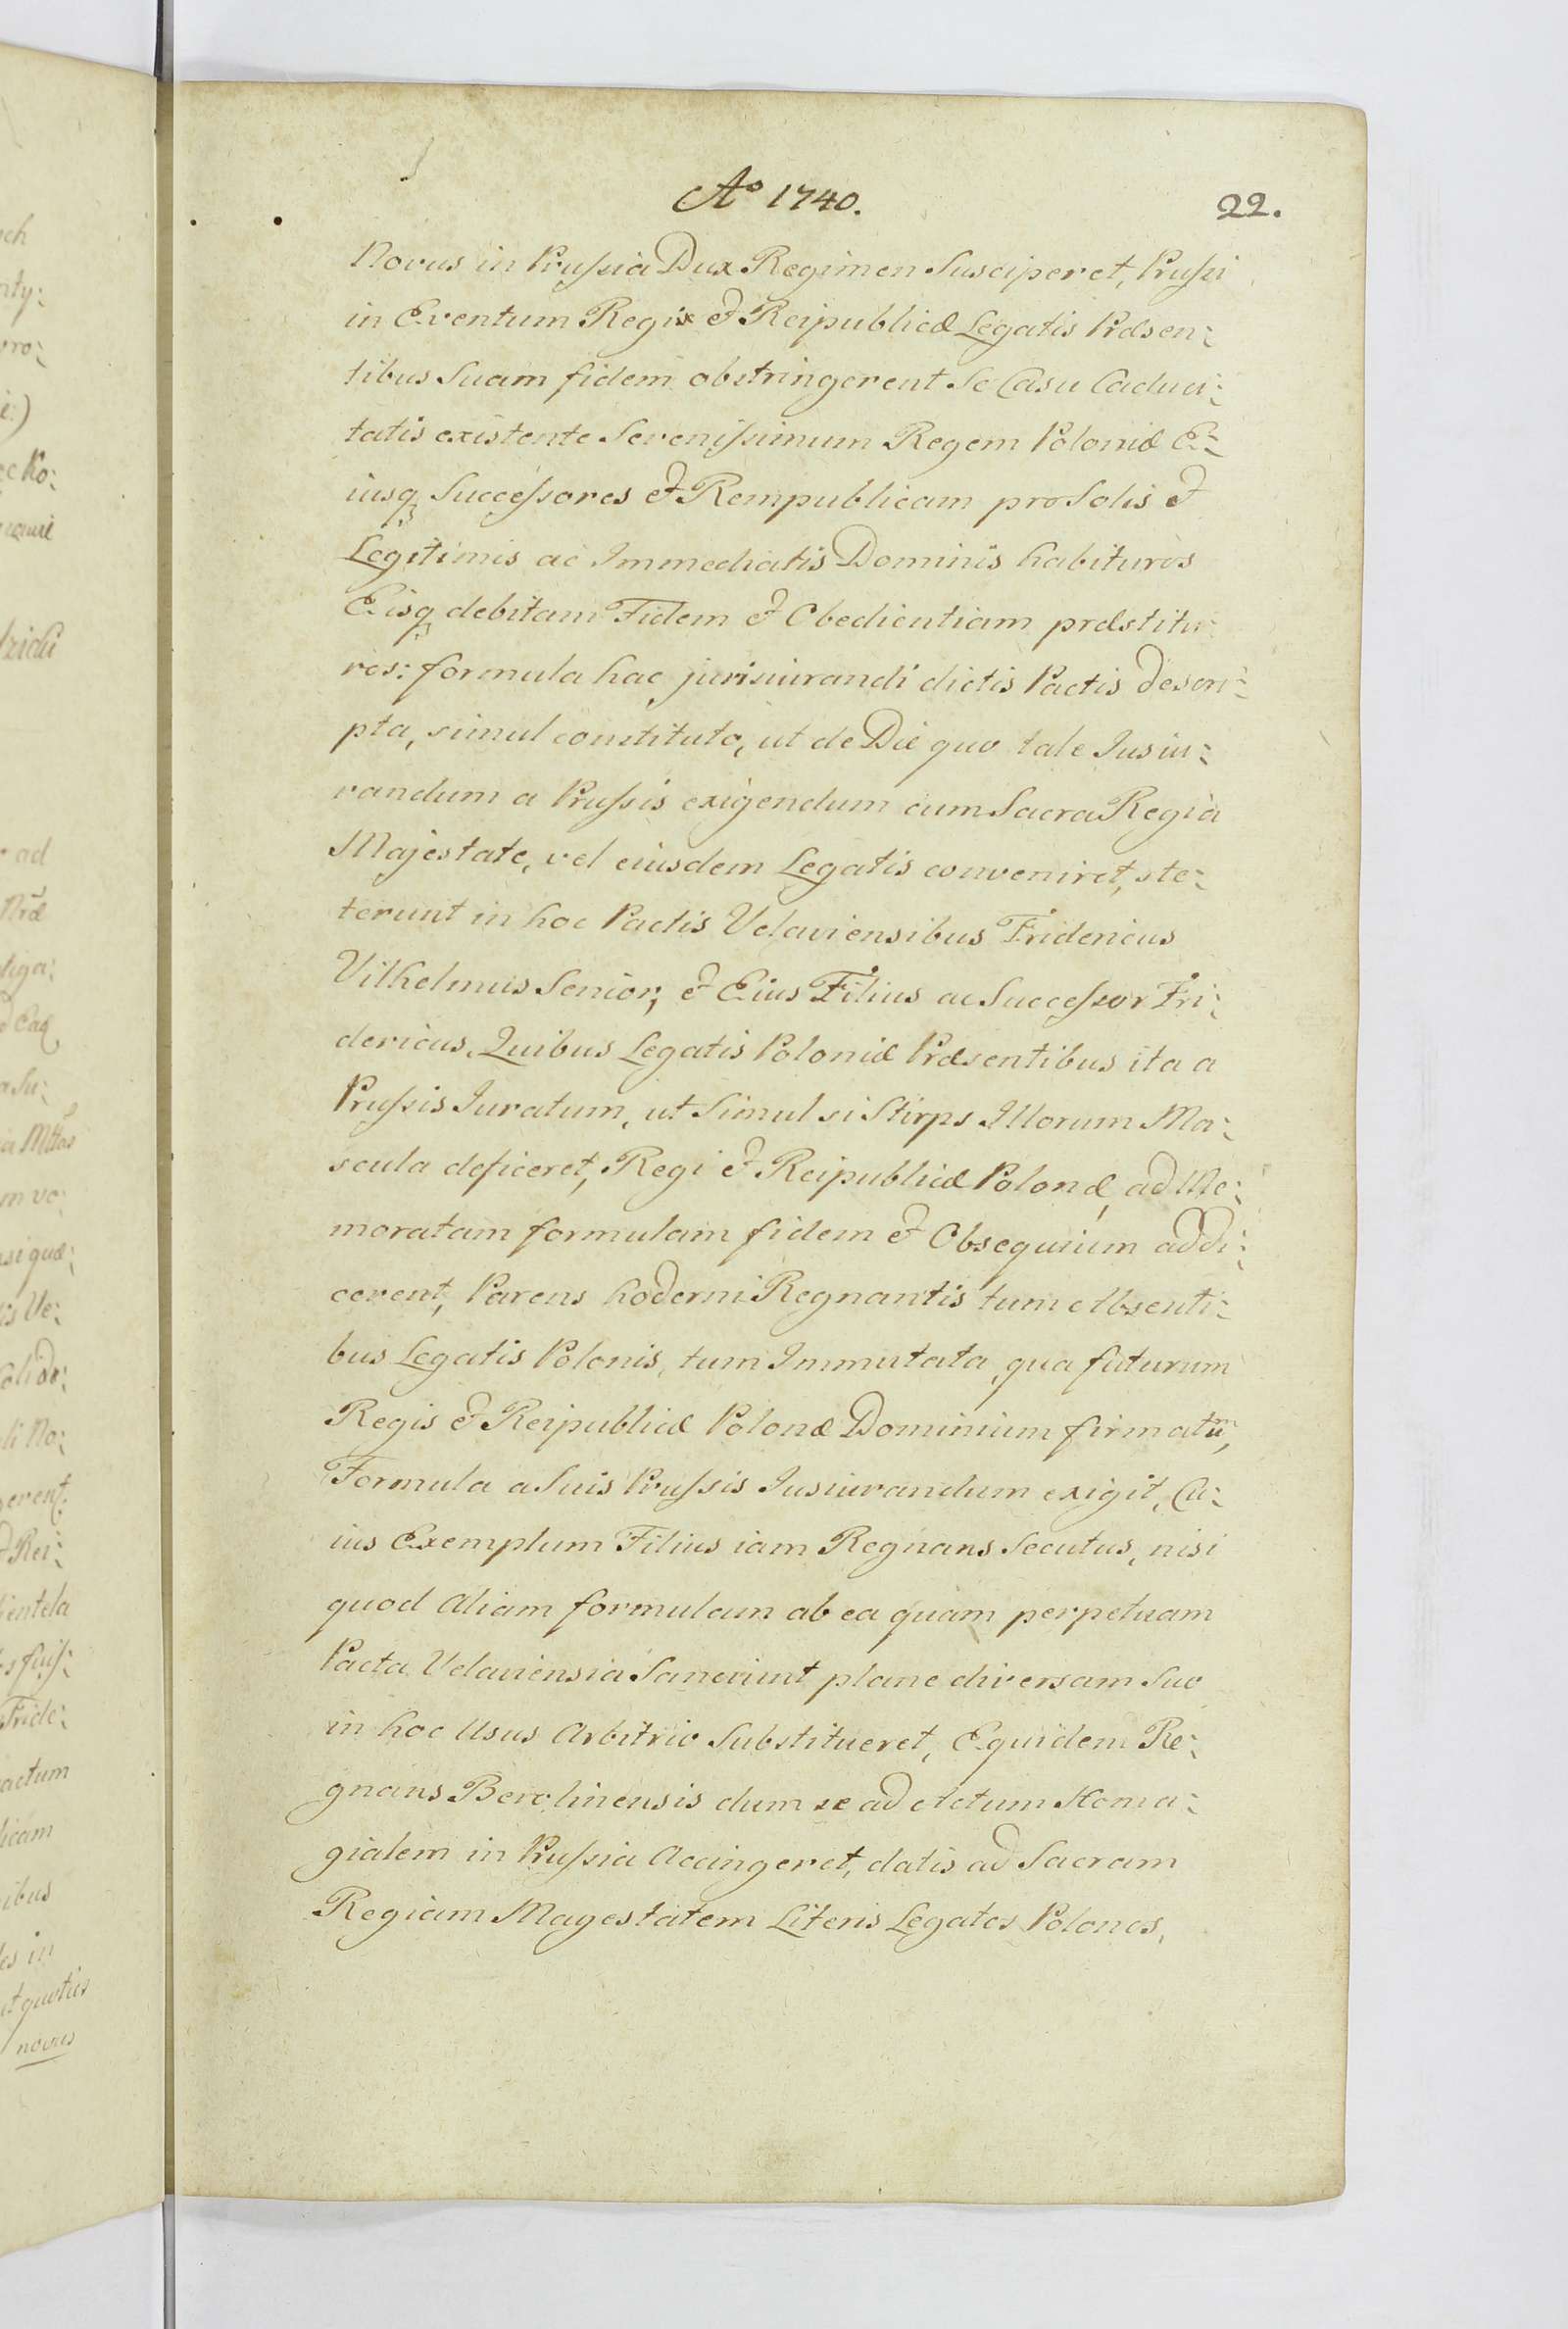 Aº 1740.
22.
Novus in Prussia Dux Regimen Susciperet, Prussi
in Eventum Regiæ et Reipublicæ Legatis Præsen:
tibus Suam fidem obstringerent Se Casu Caduci:
tatis existente Serenissimum Regem Poloniæ E:
iusq; Successores et Rempublicam pro Solis et
Legitimis ac Immediatis Dominis habituros
Eisq; debitam Fidem et Obedientiam præstitu:
ros: formula hac jurisiurandi dictis Pactis descri:
pta, simul constituto, ut de Die quo tale Jusiu:
randum a Prussis exigendum cum Sacra Regia
Majestate, vel eiusdem Legatis conveniret, ste:
terunt in hoc Pactis Velaviensibus Fridericus
Vilhelmus Senior, et Eius Filius ac Successor Fri:
dericus, Quibus Legatis Poloniæ Præsentibus ita a
Prussis Juratum, ut Simul si Stirps Illorum Ma:
scula deficeret, Regi et Reipublicæ Polonæ, ad Me:
moratam formulam fidem et Obsequium addi:
cerent, Parens hoderni Regnantis tum Absenti:
bus Legatis Polonis, tum Immutata, qua futurum
Regis et Reipublicæ Polonæ Dominium firmatũ,
Formula a Suis Prussis Jusiurandum exigit, Cu:
ius Exemplum Filius iam Regnans Secutus, nisi
quod Aliam formulam ab ea quam perpetuam
Pacta Velaviensia Sanciunt plane diversam Suo
in hoc Usus Arbitrio Substitueret, Equidem Re:
gnans Berolinensis dum se ad Actum Homa:
gialem in Prussia Accingeret, datis ad Sacram
Regiam Magestatem Literis Legatos Polonos,